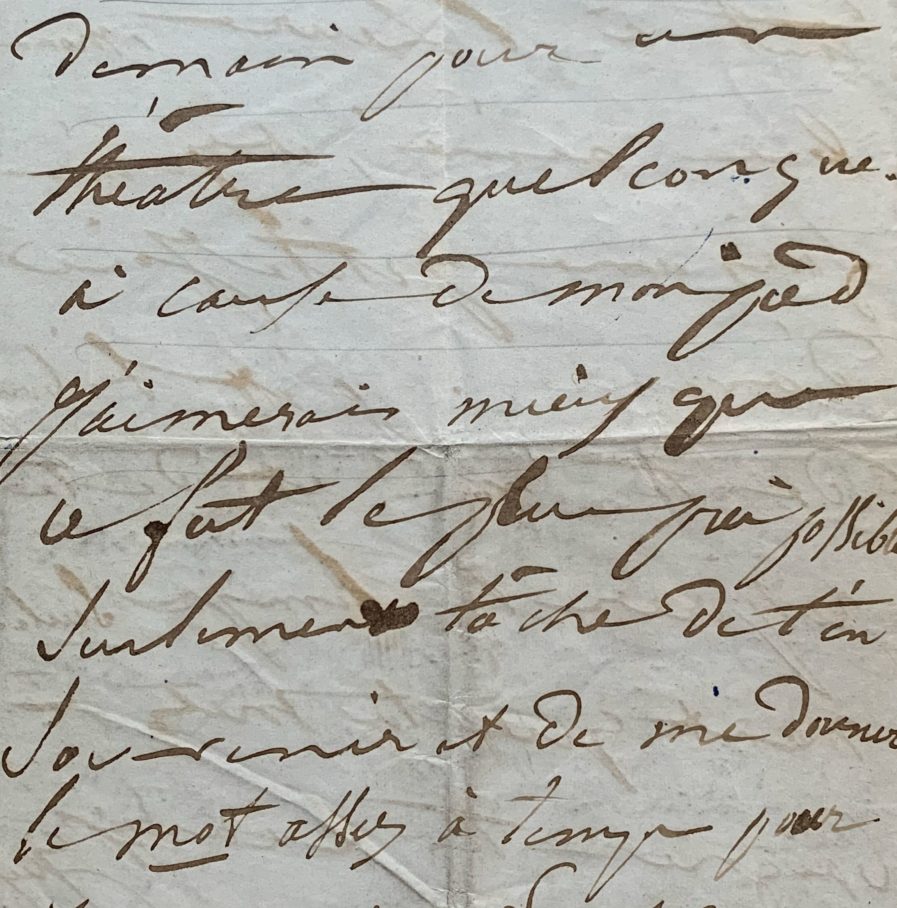 demain pour un
théâtre quelconque.
à cause de mon pied
j'aimerais mieux que
ce fut le plus près possible
Seulement tâche de t'en
Souvenir et de me donner
le mot assez à temps pour